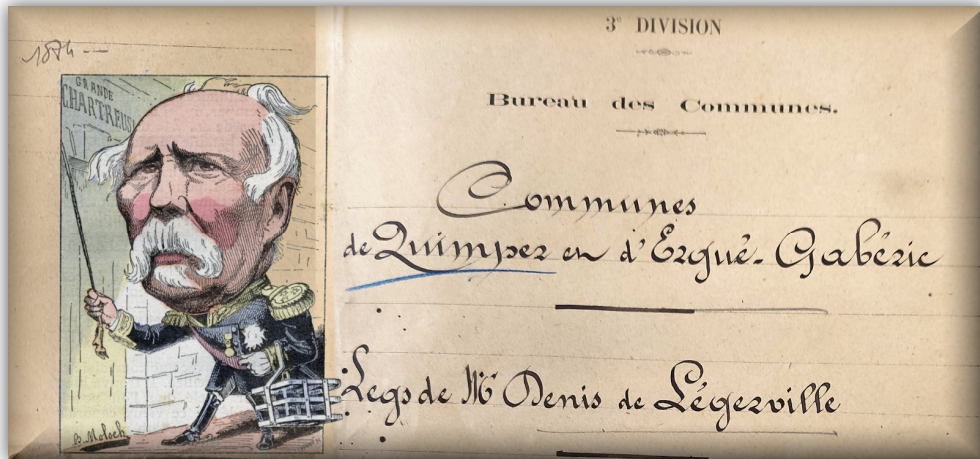 1874 --
GRANDE
CHARTREUSE
B. Moloch
3e DIVISION
Bureau des Communes.
Communes
de Quimper et d'Ergué-Gabéric
Legs de Mr Denis de Légerville